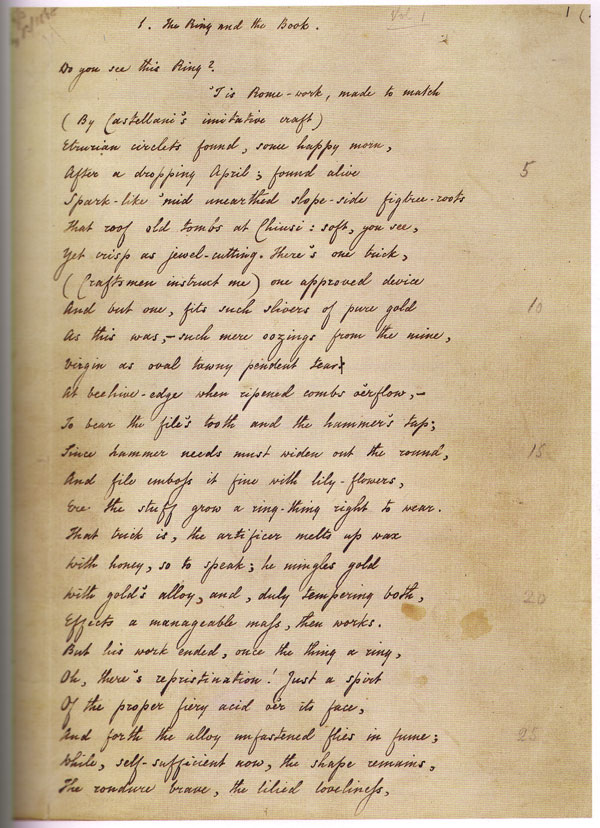 Vol. 1
1
1. The Ring and the Book.
Do you see this Ring?
'T is Rome-work, made to match
(By Castellani's imitative craft)
Etrurian circlets found, some happy morn,
After a dropping April; found alive 5
Spark-like 'mid unearthed slope-side figtree-roots
That roof old tombs at Chiusi: soft, you see,
Yet crisp as jewel-cutting. There's one trick,
(Craftsmen instruct me) one approved device
And but one, fits such slivers of pure gold 10
As this was,—such mere oozings from the mine,
Virgin as oval tawny pendent tear
At beehive-edge when ripened combs o'erflow,—
To bear the file's tooth and the hammer's tap;
Since hammer needs must widen out the round, 15
And file emboſs it fine with lily-flowers,
Ere the stuff grow a ring-thing right to wear.
That trick is, the artificer melts up wax
With honey, so to speak; he mingles gold
With gold's alloy, and, duly tempering both, 20
Effects a manageable maſs, then works.
But his work ended, once the thing a ring,
Oh, there's repristination! Just a spirt
Of the proper fiery acid o'er its face,
And forth the alloy unfastened flies in fume; 25
While, self-sufficient now, the shape remains,
The rondure brave, the lilied lovelineſs,